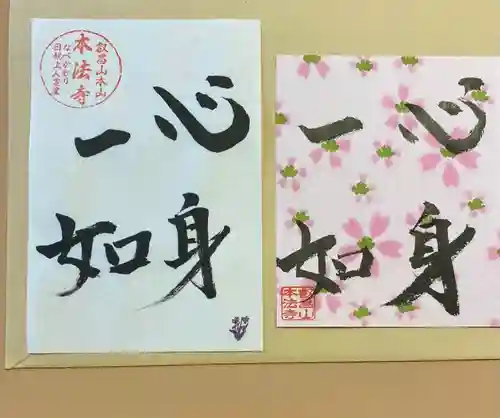 叡昌山本山
本法寺
なべかむり
日親上人霊蹟
心身
一如
心身
一如
叡昌山
本法寺